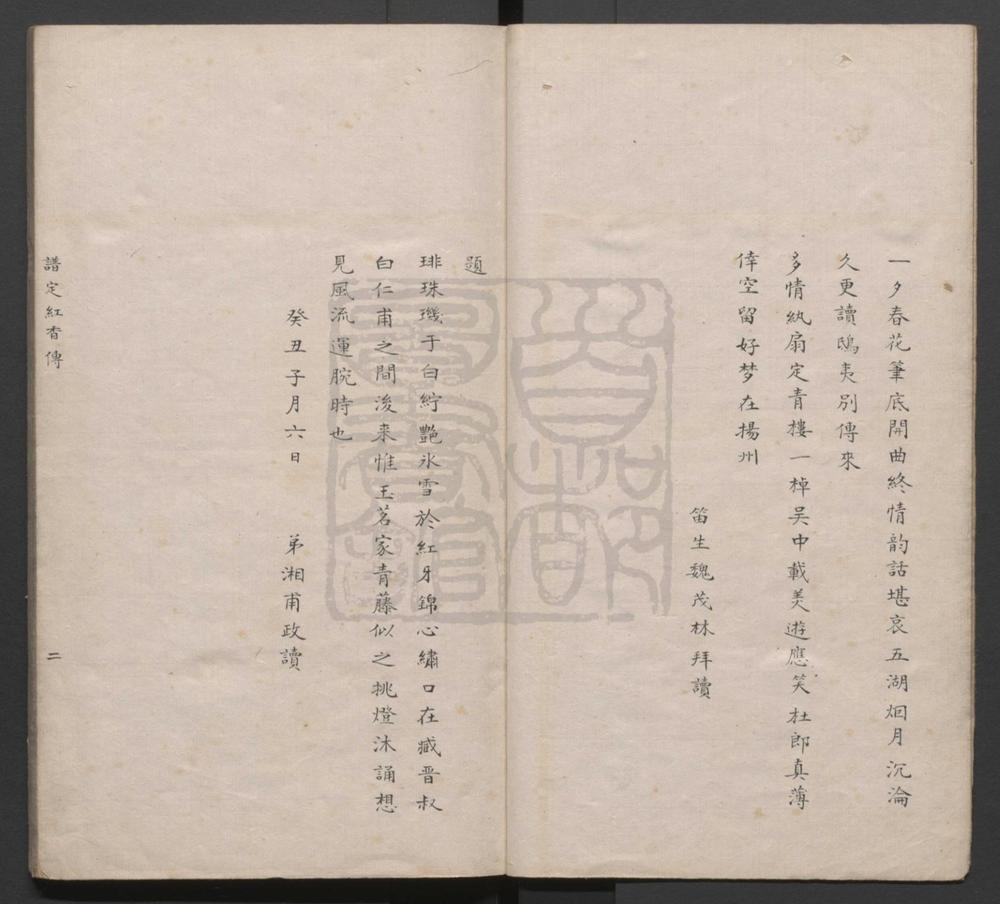 一夕春花筆底開曲終情韵話堪哀五湖烟月沉淪
久更讀鴟夷別傳來
多情紈扇定青樓一棹吳中載美遊應笑杜郎真薄
倖空留好梦在揚州
笛生魏茂林拜讀
題
琲珠璣于白紵艷氷雪於紅牙錦心繡口在臧晉叔
白仁甫之間浚来惟玉茗家青藤似之挑燈沐誦想
見風流運腕時也
癸丑子月六日
弟湘甫政讀
譜定紅香傳
二